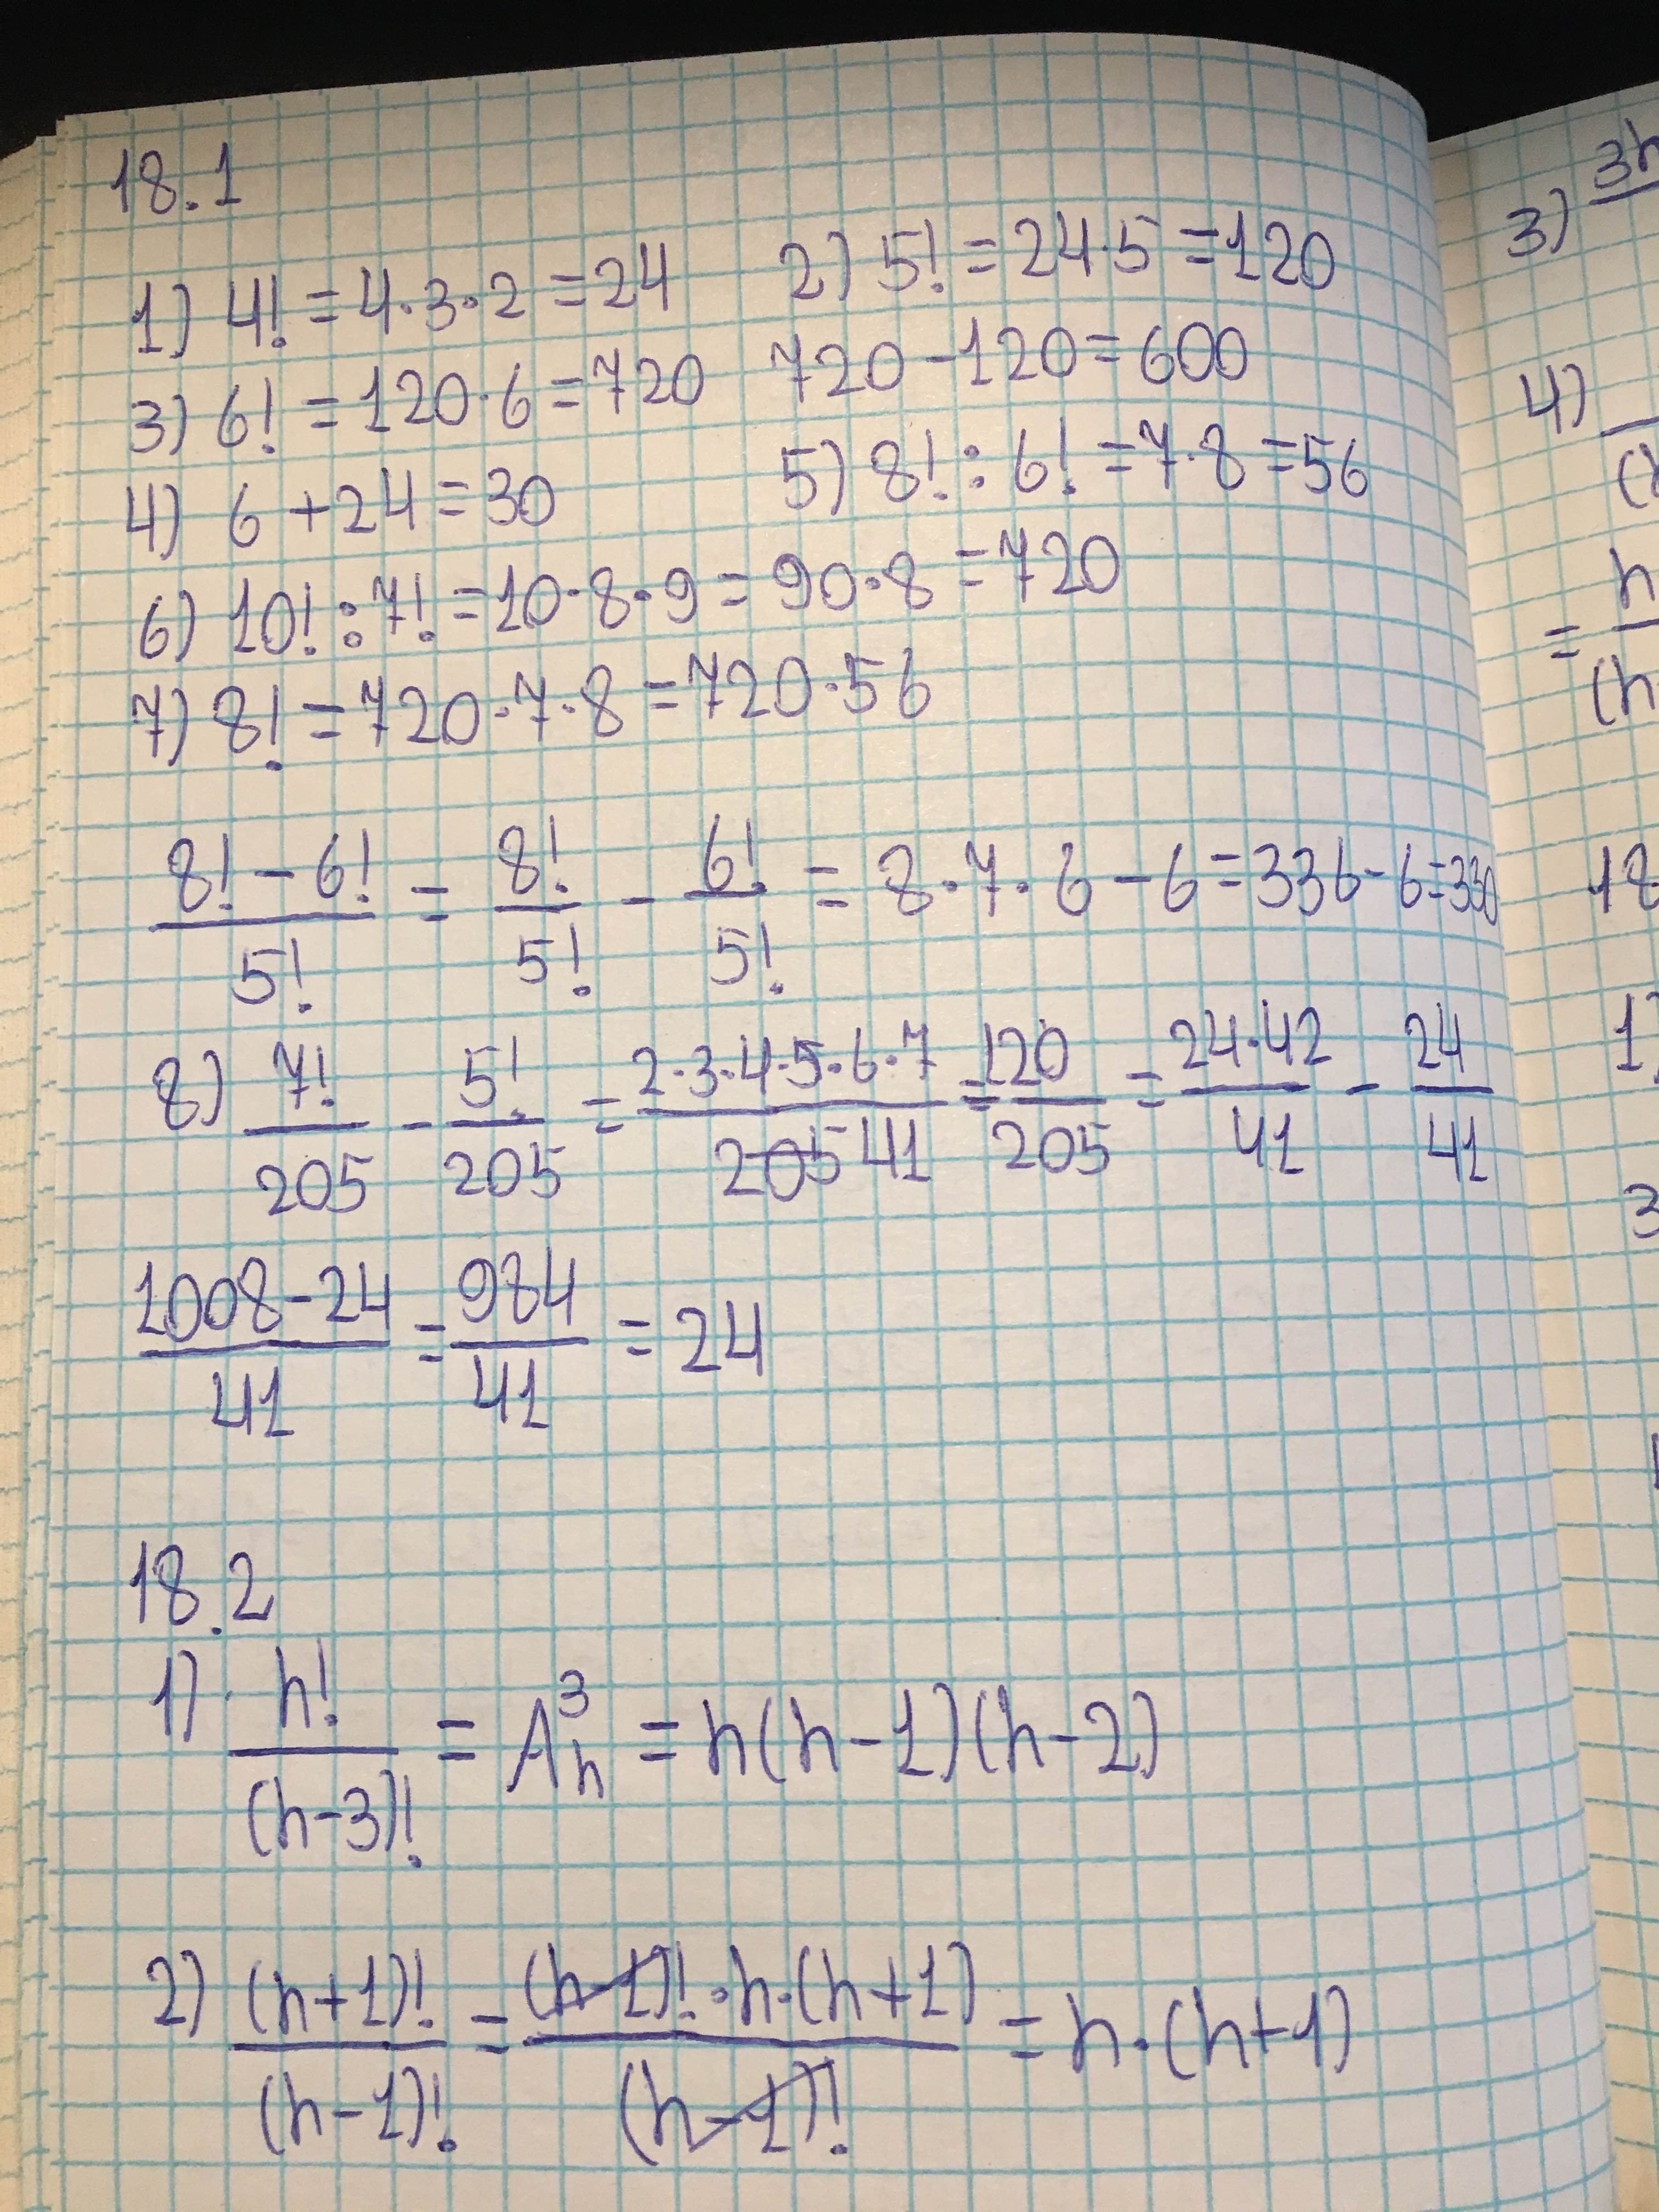 18.1
1) 4! = 4·3·2 = 24 2) 5! = 24·5 = 120
3) 6! = 120·6 = 720 720 - 120 = 600
4) 6 + 24 = 30 5) 8! : 6! = 7·8 = 56
6) 10! : 7! = 10·8·9 = 90·8 = 720
7) 8! = 720·7·8 = 720·56
(8! - 6!)/5! = 8!/5! - 6!/5! = 8·7·6 - 6 = 336 - 6 = 330
8) 7!/205 - 5!/205 = (2·3·4·5·6·7)/(205 41) = 120/205 = (24·42)/41 - 24/41
(1008 - 24)/41 = 984/41 = 24
18.2
1) n!/(n-3)! = A³ₙ = n(n-1)(n-2)
2) (n+1)!/(n-1)! = ((n-1)!·n·(n+1))/(n-1)! = n·(n+1)
3) 3n
4)
= n
(n
18
1)
3